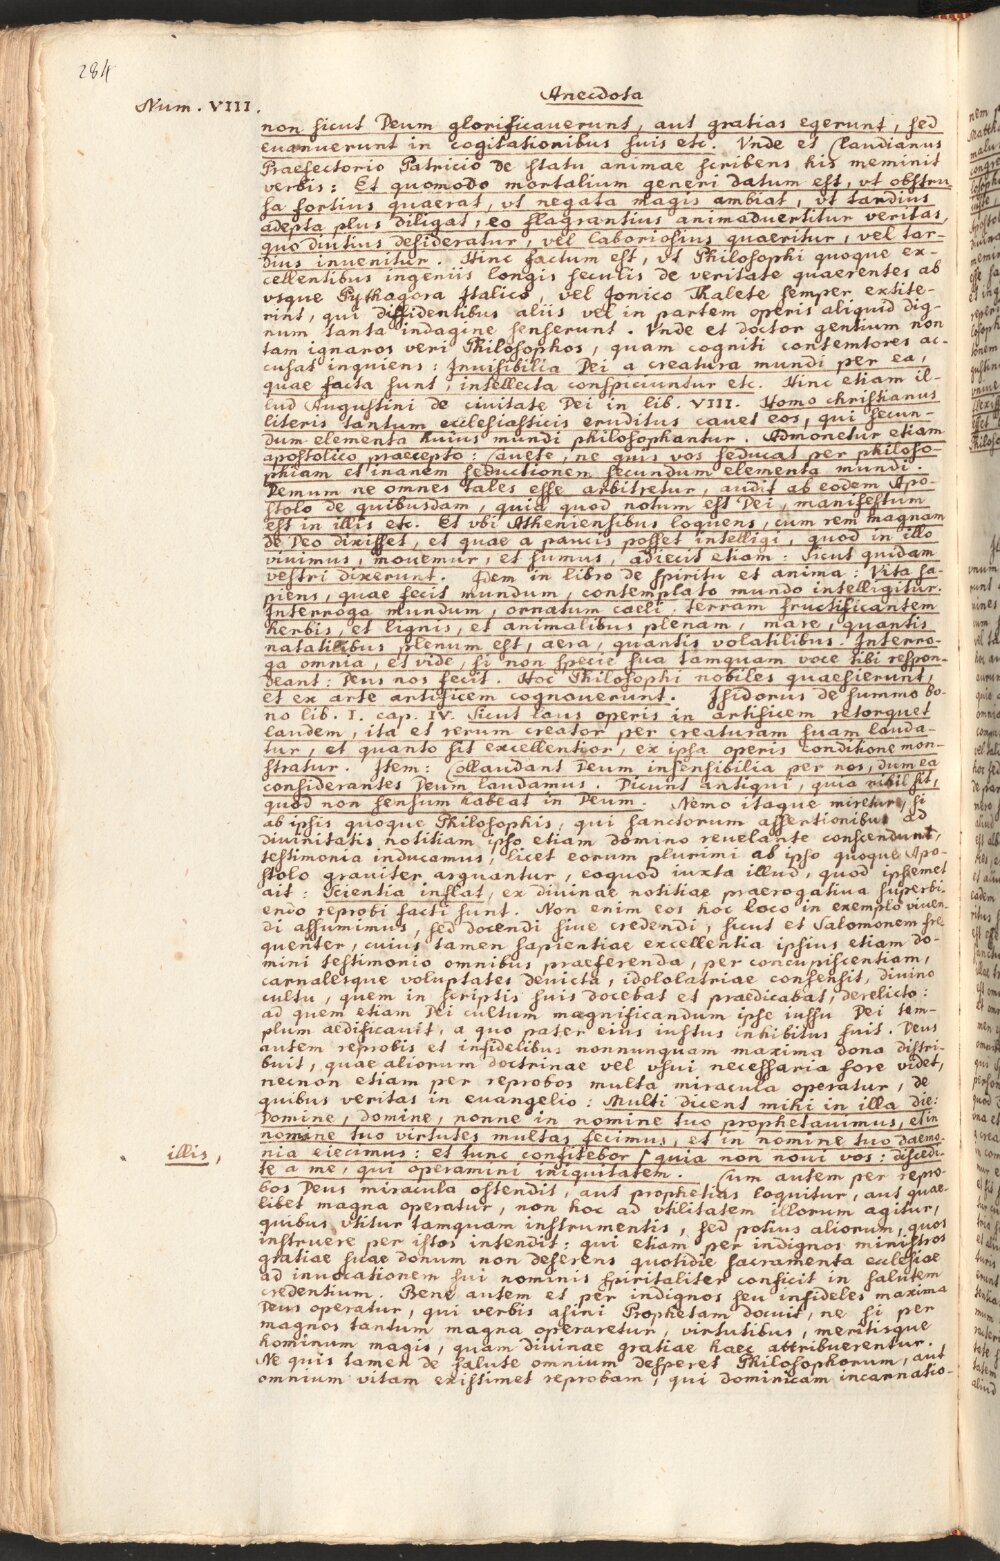 284
Num. VIII.
Anecdota
non sicut Deum glorificauerunt, aut gratias egerunt, sed
euanuerunt in cogitationibus suis etc. Vnde et Claudianus
Praefectorio Patricio de statu animae scribens his meminit
verbis: Et quomodo mortalium generi datum est, vt obstru-
sa fortius quaerat, vt negata magis ambiat, vt tardius
adepta plus diligat, eo flagrantius animaduertitur veritas,
quo diutius desideratur, vel laboriosius quaeritur, vel tar-
dius inuenitur. Hinc factum est, vt Philosophi quoque ex-
cellentibus ingeniis longis seculis de veritate quaerentes ab
vsque Pythagora Italico, vel Jonico Thalete semper extite-
rint, qui diffidentibus aliis vel in partem operis aliquid dig-
num tanta indagine senserunt. Vnde et doctor gentium non
tam ignaros veri Philosophos, quam cogniti contemtores ac-
cusat inquiens: Inuisibilia Dei a creatura mundi per ea,
quae facta sunt, intellecta conspiciuntur etc. Hinc etiam il-
lud Augustini de ciuitate Dei in lib. VIII. Homo christianus
literis tantum ecclesiasticis eruditus cauet eos, qui secun-
dum elementa huius mundi philosophantur. Admonetur etiam
apostolico praecepto: Cauete, ne quis vos seducat per philoso-
phiam et inanem seductionem secundum elementa mundi.
Demum ne omnes tales esse arbitretur, audit ab eodem Apo-
stolo de quibusdam, quia quod notum est Dei, manifestum
est in illis etc. Et vbi Atheniensibus loquens, cum rem magnam
de Deo dixisset, et quae a paucis posset intelligi, quod in illo
viuimus, mouemur, et sumus, adiecit etiam: Sicut quidam
vestri dixerunt. Idem in libro de spiritu et anima: Vita sa-
piens, quae fecit mundum, contemplato mundo intelligitur.
Interroga mundum, ornatum caeli, terram fructificantem
herbis, et lignis, et animalibus plenam, mare, quantis
natatilibus plenum est, aera, quantis volatilibus. Interro-
ga omnia, et vide, si non specie sua tamquam voce tibi respon-
deant: Deus nos fecit. Hoc Philosophi nobiles quaesierunt,
et ex arte artificem cognouerunt. Isidorus de summo bo-
no lib. I. cap. IV. Sicut laus operis in artificem retorquet
laudem, ita et rerum creator per creaturam suam lauda-
tur, et quanto sit excellentior, ex ipsa operis conditione mon-
stratur. Item: Collaudant Deum insensibilia per nos, dum ea
considerantes Deum laudamus. Dicunt antiqui, quia nihil sit,
quod non sensum habeat in Deum. Nemo itaque miretur, si
ab ipsis quoque Philosophis, qui sanctorum assertionibus ad
diuinitatis notitiam ipso etiam domino reuelante conscendunt,
testimonia inducamus, licet eorum plurimi ab ipso quoque Apo-
stolo grauiter arguantur, eoquod iuxta illud, quod ipsemet
ait: Scientia inflat, ex diuinae notitiae praerogatiua superbi-
endo reprobi facti sunt. Non enim eos hoc loco in exemplo viuen-
di assumimus, sed docendi siue credendi, sicut et Salomonem fre-
quenter, cuius tamen sapientiae excellentia ipsius etiam do-
mini testimonio omnibus praeferenda, per concupiscentiam,
carnalesque voluptates deuicta, idololatriae consensit, diuino
cultu, quem in scriptis suis docebat et praedicabat, derelicto:
ad quem etiam Dei cultum magnificandum ipse iussu Dei tem-
plum aedificauit, a quo pater eius iustus inhibitus fuit. Deus
autem reprobis et infidelibus nonnunquam maxima dona distri-
buit, quae aliorum doctrinae vel vsui necessaria fore videt,
necnon etiam per reprobos multa miracula operatur, de
quibus veritas in euangelio: Multi dicent mihi in illa die:
Domine, domine, nonne in nomine tuo prophetauimus, et in
nomine tuo virtutes multas fecimus, et in nomine tuo daemo-
illis,
nia eiecimus: et tunc confitebor ⌈ quia non noui vos: discedi-
te a me, qui operamini iniquitatem. Cum autem per repro-
bos Deus miracula ostendit, aut prophetias loquitur, aut quae-
libet magna operatur, non hoc ad vtilitatem illorum agitur,
quibus vtitur tamquam instrumentis, sed potius aliorum, quos
instruere per istos intendit: qui etiam per indignos ministros
gratiae suae donum non deserens quotidie sacramenta ecclesiae
ad inuocationem sui nominis spiritaliter conficit in salutem
credentium. Bene autem et per indignos seu infideles maxima
Deus operatur, qui verbis asini Prophetam docuit, ne si per
magnos tantum magna operaretur, virtutibus, meritisque
hominum magis, quam diuinae gratiae haec attribuerentur.
Ne quis tamen de salute omnium desperet Philosophorum, aut
omnium vitam existimet reprobam, qui dominicam incarnatio-